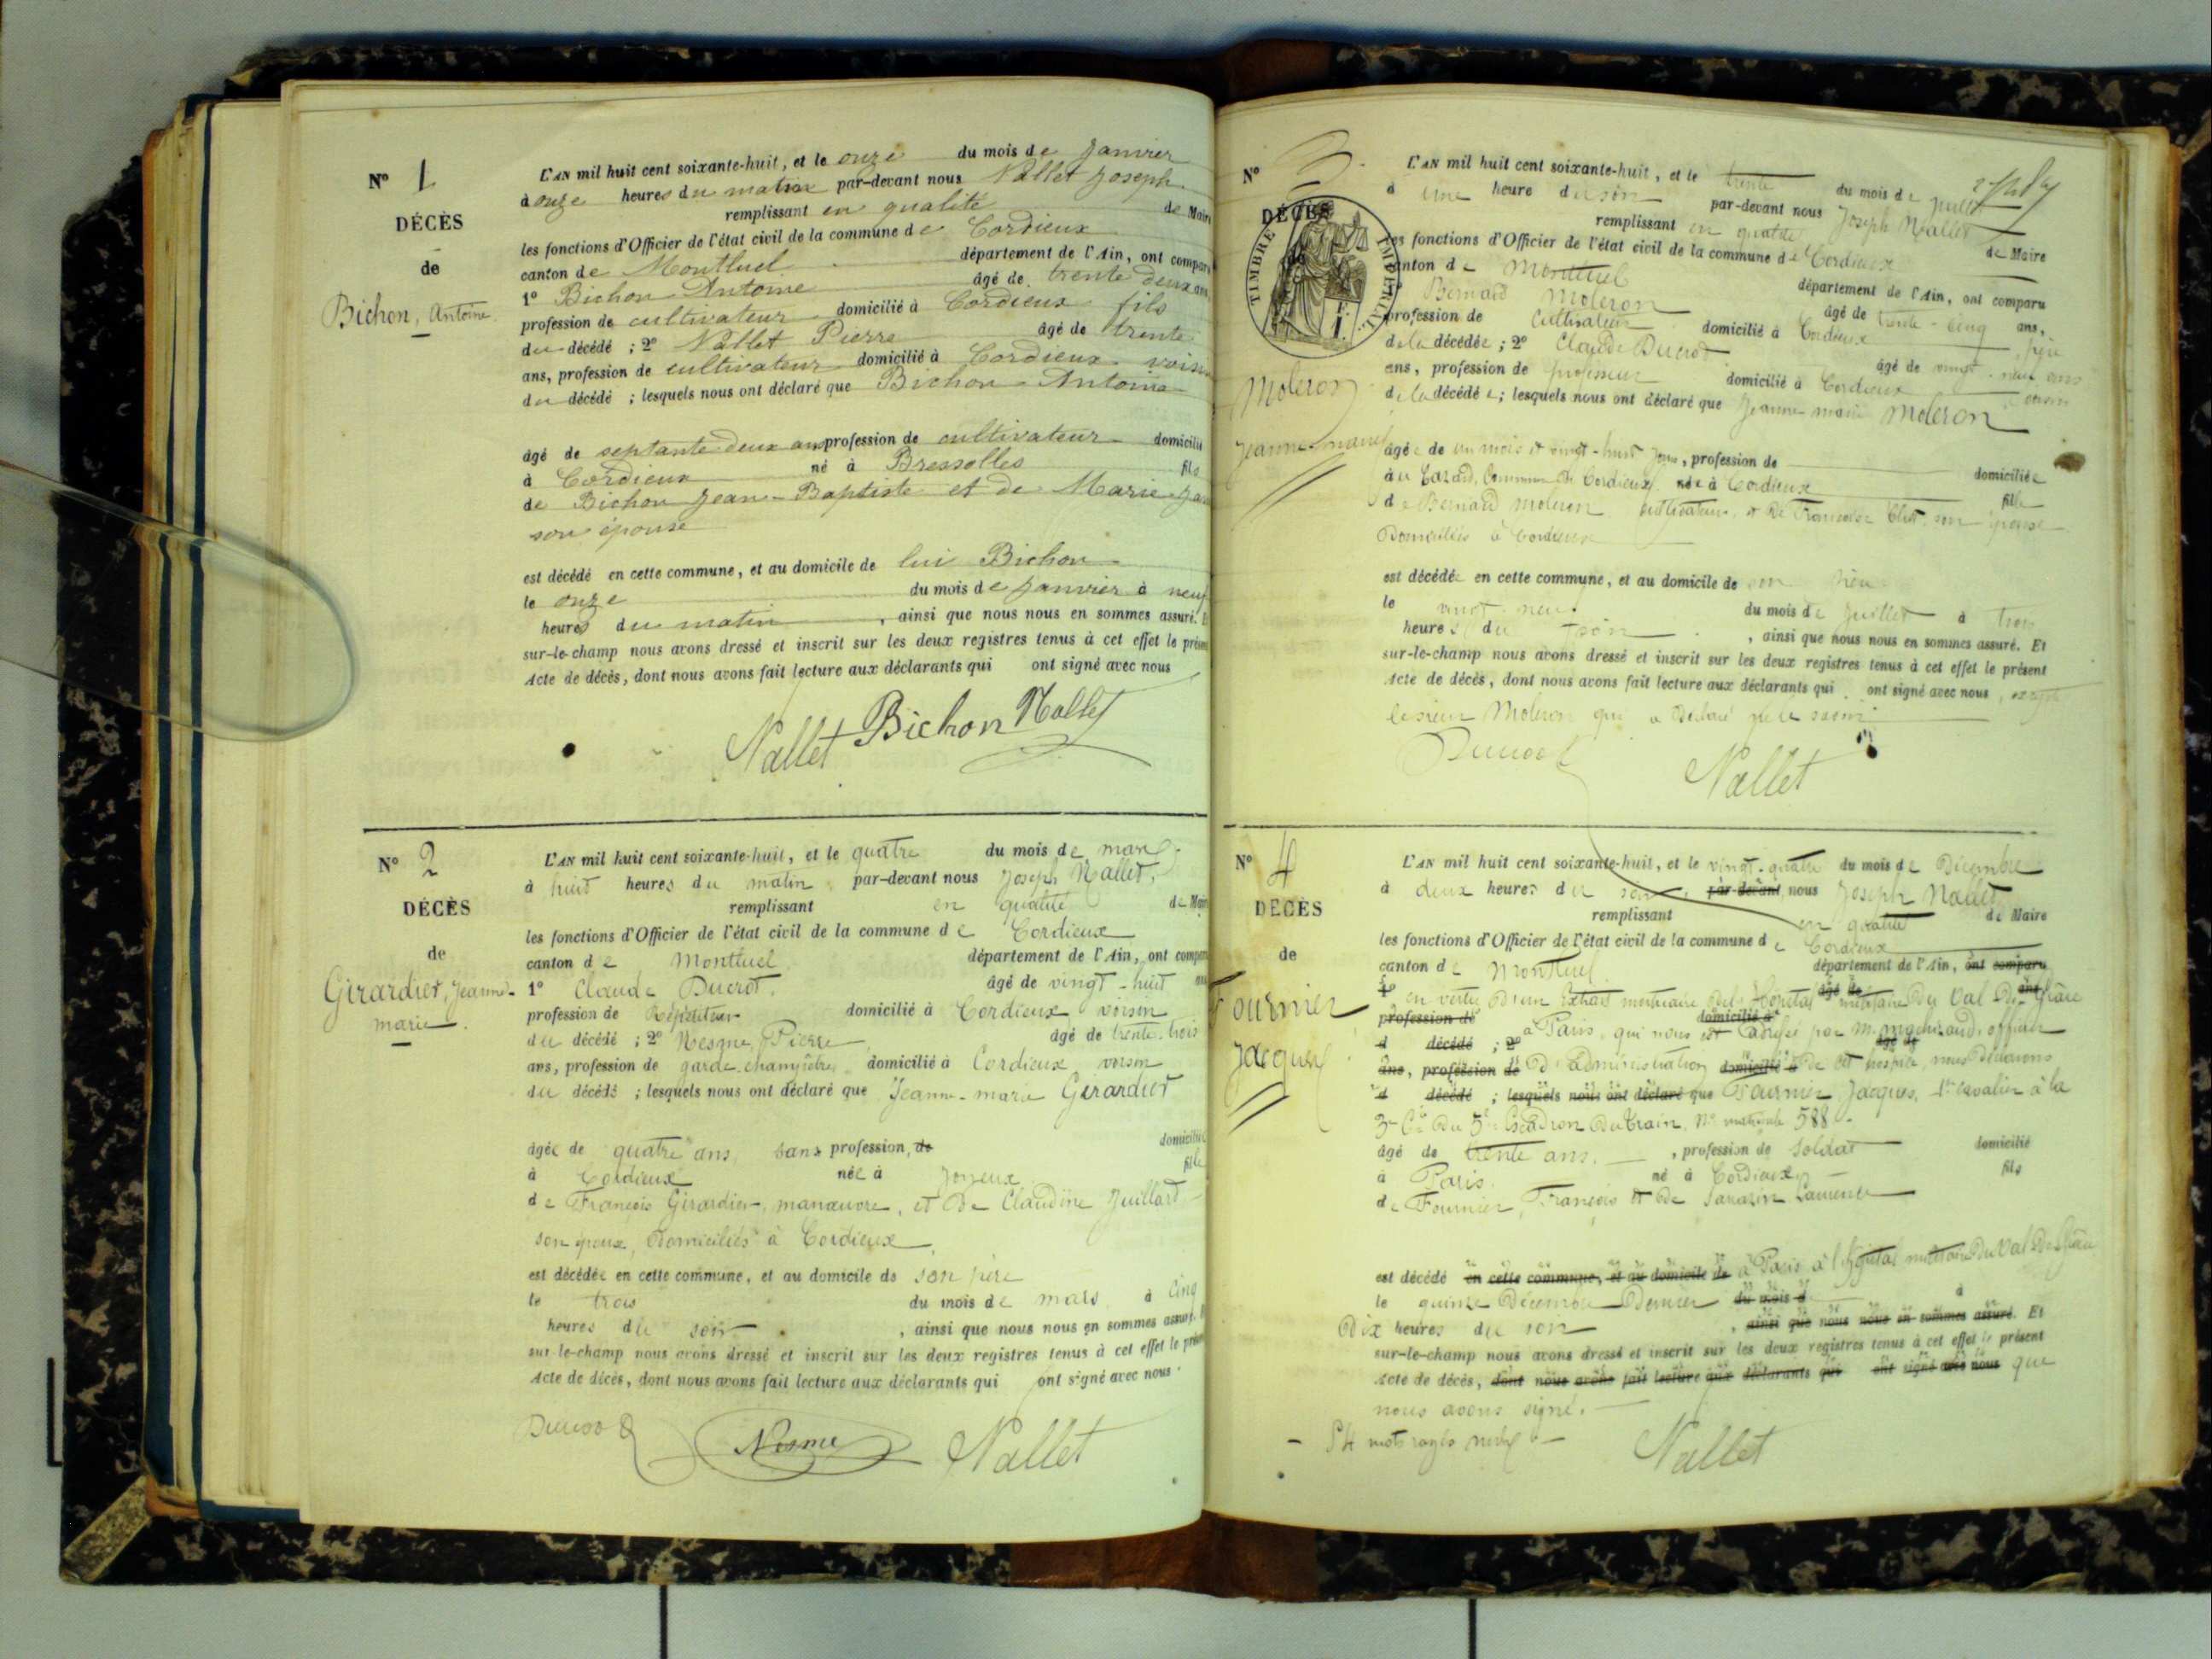 N° 1
DÉCÈS
de
Bichon, Antoine
L'AN mil huit cent soixante-huit, et le onze du mois de Janvier
à onze heures du matin par-devant nous Nallet Joseph
remplissant en qualité de Maire
les fonctions d'Officier de l'état civil de la commune de Cordieux
canton de Montluel département de l'Ain, ont comparu
1° Bichon Antoine âgé de trente deux ans,
profession de cultivateur domicilié à Cordieux fils
du décédé ; 2° Nallet Pierre âgé de trente
ans, profession de cultivateur domicilié à Cordieux voisin
du décédé ; lesquels nous ont déclaré que Bichon Antoine
âgé de septante deux ans profession de cultivateur domicilié
à Cordieux né à Bressolles fils
de Bichon Jean-Baptiste et de Marie
son épouse
est décédé en cette commune, et au domicile de lui Bichon
le onze du mois de Janvier à neuf
heures du matin, ainsi que nous nous en sommes assuré.
sur-le-champ nous avons dressé et inscrit sur les deux registres tenus à cet effet le présent
Acte de décès, dont nous avons fait lecture aux déclarants qui ont signé avec nous
Nallet Bichon Nallet
N° 2
DÉCÈS
de
Girardier, Jeanne-
marie.
L'AN mil huit cent soixante-huit, et le quatre du mois de mars
à huit heures du matin, par-devant nous Joseph Nallet,
remplissant en qualité de Maire
les fonctions d'Officier de l'état civil de la commune de Cordieux
canton de Montluel département de l'Ain, ont comparu
1° Claude Ducrot. âgé de vingt-huit ans
profession de Répétiteur domicilié à Cordieux voisin
du décédé ; 2° Nesme, Pierre âgé de trente-trois
ans, profession de garde-champêtre, domicilié à Cordieux voisin
du décédé ; lesquels nous ont déclaré que Jeanne-marie Girardier
âgée de quatre ans, sans profession, de domiciliée
à Cordieux née à Joyeux fille
de François Girardier, manœuvre, et de Claudine Juillard
son épouse, domiciliés à Cordieux
est décédée en cette commune, et au domicile de son père
le trois du mois de mars à cinq
heures du soir, ainsi que nous nous en sommes assuré.
sur-le-champ nous avons dressé et inscrit sur les deux registres tenus à cet effet le présent
Acte de décès, dont nous avons fait lecture aux déclarants qui ont signé avec nous.
Ducrot Nesme Nallet
N° 3.
DÉCÈS
TIMBRE IMPÉRIAL
Moleron
Jeanne-marie
L'AN mil huit cent soixante-huit, et le trente du mois de juillet
à une heure du soir par-devant nous Joseph Nallet
remplissant en qualité de Maire
les fonctions d'Officier de l'état civil de la commune de Cordieux
canton de Montluel département de l'Ain, ont comparu
Bernard Moleron âgé de trente-cinq ans,
profession de cultivateur domicilié à Cordieux, père
de la décédée ; 2° Claude Ducrot âgé de vingt-neuf ans
ans, profession de domicilié à Cordieux voisin
de la décédée ; lesquels nous ont déclaré que Jeanne marie Moleron
âgée de un mois et vingt-huit jours, profession de domiciliée
au commune de Cordieux, née à Cordieux fille
de Bernard Moleron, cultivateur, et de Françoise son épouse
Domiciliés à Cordieux
est décédée en cette commune, et au domicile de son
le vingt-neuf du mois de Juillet à trois
heures du soir, ainsi que nous nous en sommes assuré. Et
sur-le-champ nous avons dressé et inscrit sur les deux registres tenus à cet effet le présent
Acte de décès, dont nous avons fait lecture aux déclarants qui ont signé avec nous, excepté
le sieur Moleron qui a déclaré ne le savoir
Ducrot Nallet
N° 4
DÉCÈS
de
Fournier
Jacques
L'AN mil huit cent soixante-huit, et le vingt-quatre du mois de Décembre
à deux heures du soir, par-devant, nous Joseph Nallet
remplissant en qualité de Maire
les fonctions d'Officier de l'état civil de la commune de Cordieux
canton de Montluel département de l'Ain, ont comparu
1° en vertu d'un Extrait mortuaire de l'hopital militaire du Val de Grâce âgé de ans
profession de domicilié à à Paris, qui nous est adressé par M. officier
d décédé ; 2° âgé de
ans, profession de d'administration domicilié à de cet hospice, nous déclarons
d décédé ; lesquels nous ont déclaré que Fournier Jacques, 1er cavalier à la
3e Cie du 5e Escadron du train, N° matricule 588.
âgé de trente ans, profession de soldat domicilié
à Paris. né à Cordieux fils
de Fournier, François et de Sarazin Laurence
est décédé en cette commune, et au domicile de à Paris à l'hôpital militaire du Val de Grâce
le quinze Décembre Dernier du mois d à
Dix heures du soir, ainsi que nous nous en sommes assuré. Et
sur-le-champ nous avons dressé et inscrit sur les deux registres tenus à cet effet le présent
Acte de décès, dont nous avons fait lecture aux déclarants qui ont signé avec nous que
nous avons signé.
mots rayés nuls
Nallet